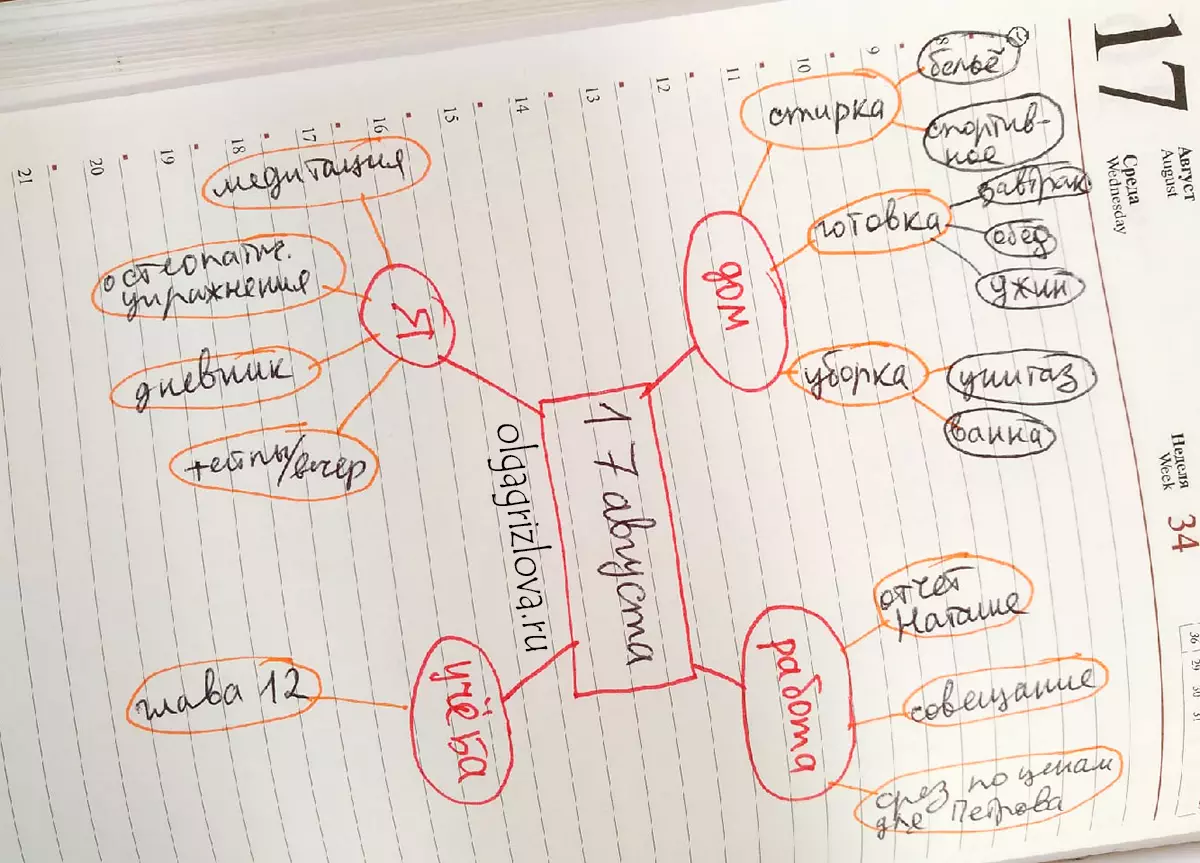 17
Август
August
Среда
Wednesday
Неделя
Week
34
36
29
30
31
8
9
10
11
12
13
14
15
16
17
18
19
20
21
17 августа
olgagrizlova.ru
дом
стирка
бельё
спортив-
ное
готовка
завтрак
обед
ужин
уборка
унитаз
ванна
работа
отчет
Наташе
совещание
срез по ценам
для Петрова
учёба
глава 12
Я
медитация
остеопатич.
упражнения
дневник
тейпы/вечер